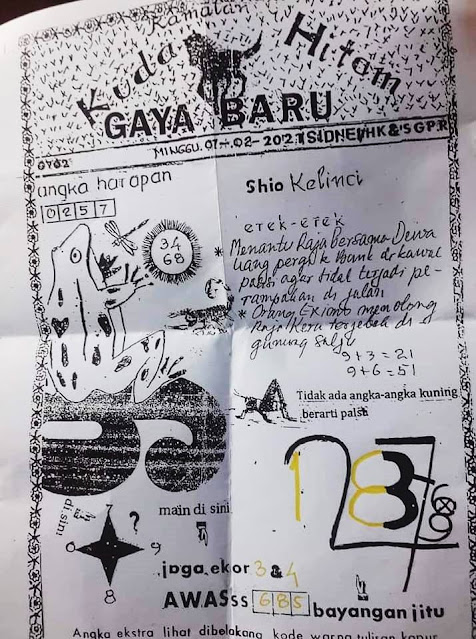 Ramalan
Kuda Hitam
GAYA BARU
MINGGU. 07-02-2021 SIDNEI/HK & SGPR
GY02
angka harapan
0257
Shio Kelinci
34
68
erek-erek
* Menantu Raja bersama Dewa
uang pergi k Bank di kawal
polisi agar tidak terjadi pe-
rampokan di jalan
* Orang Eximo menolong
Raja Kera terjebak di
gunung salju
9+3=21
9+6=51
Tidak ada angka-angka kuning
berarti palsu
1
2
8
3
7
6
main di sini
disini
?
0
7
9
8
jaga ekor 3 & 4
AWASss 685 bayangan jitu
Angka ekstra lihat dibelakang kode warna tulisan kapur